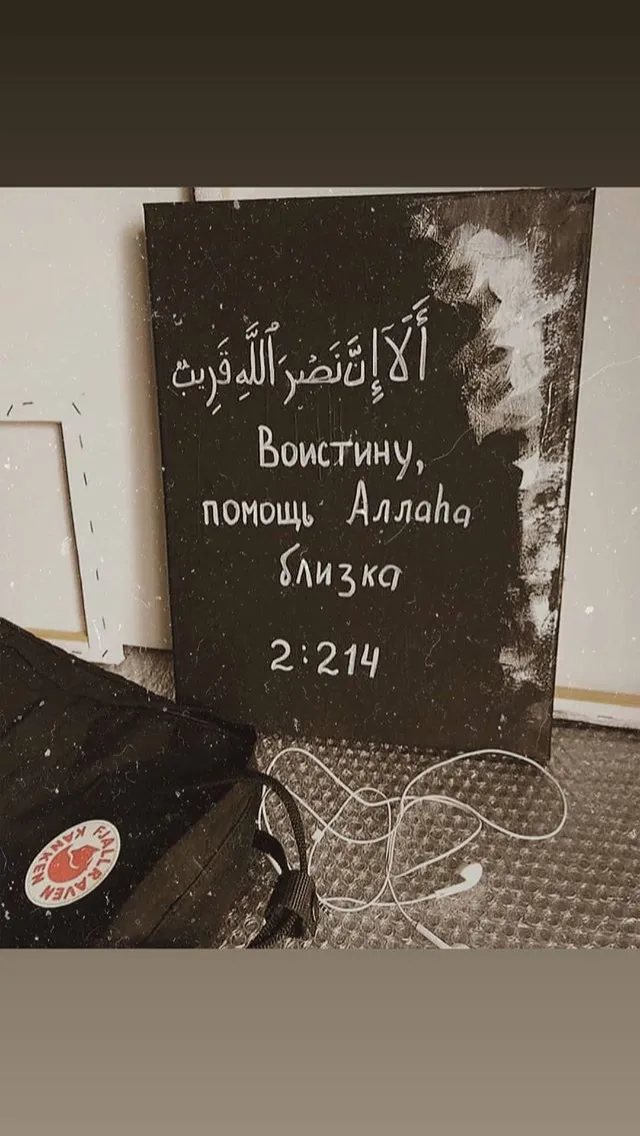 أَلَآ إِنَّ نَصْرَ ٱللَّهِ قَرِيبٌ
Воистину,
помощь Аллаhа
близка
2:214
FJÄLLRÄVEN
KÅNKEN